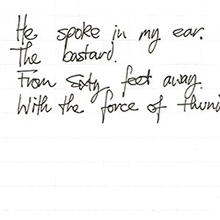 He spoke in my ear.
The bastard.
From sixty feet away.
With the force of thund